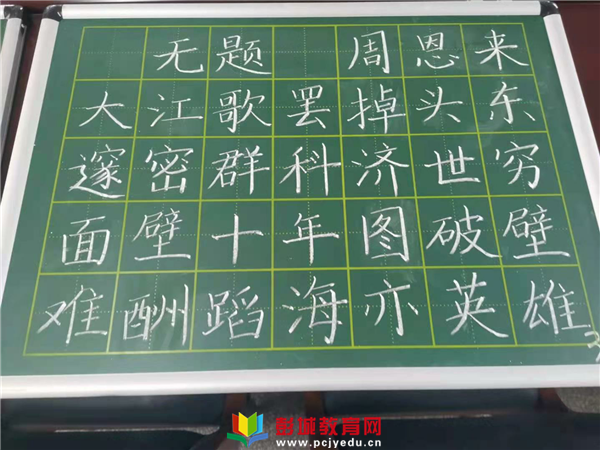 无题 周恩来
大江歌罢掉头东
邃密群科济世穷
面壁十年图破壁
难酬蹈海亦英雄
彭城教育网
www.pcjyedu.cn